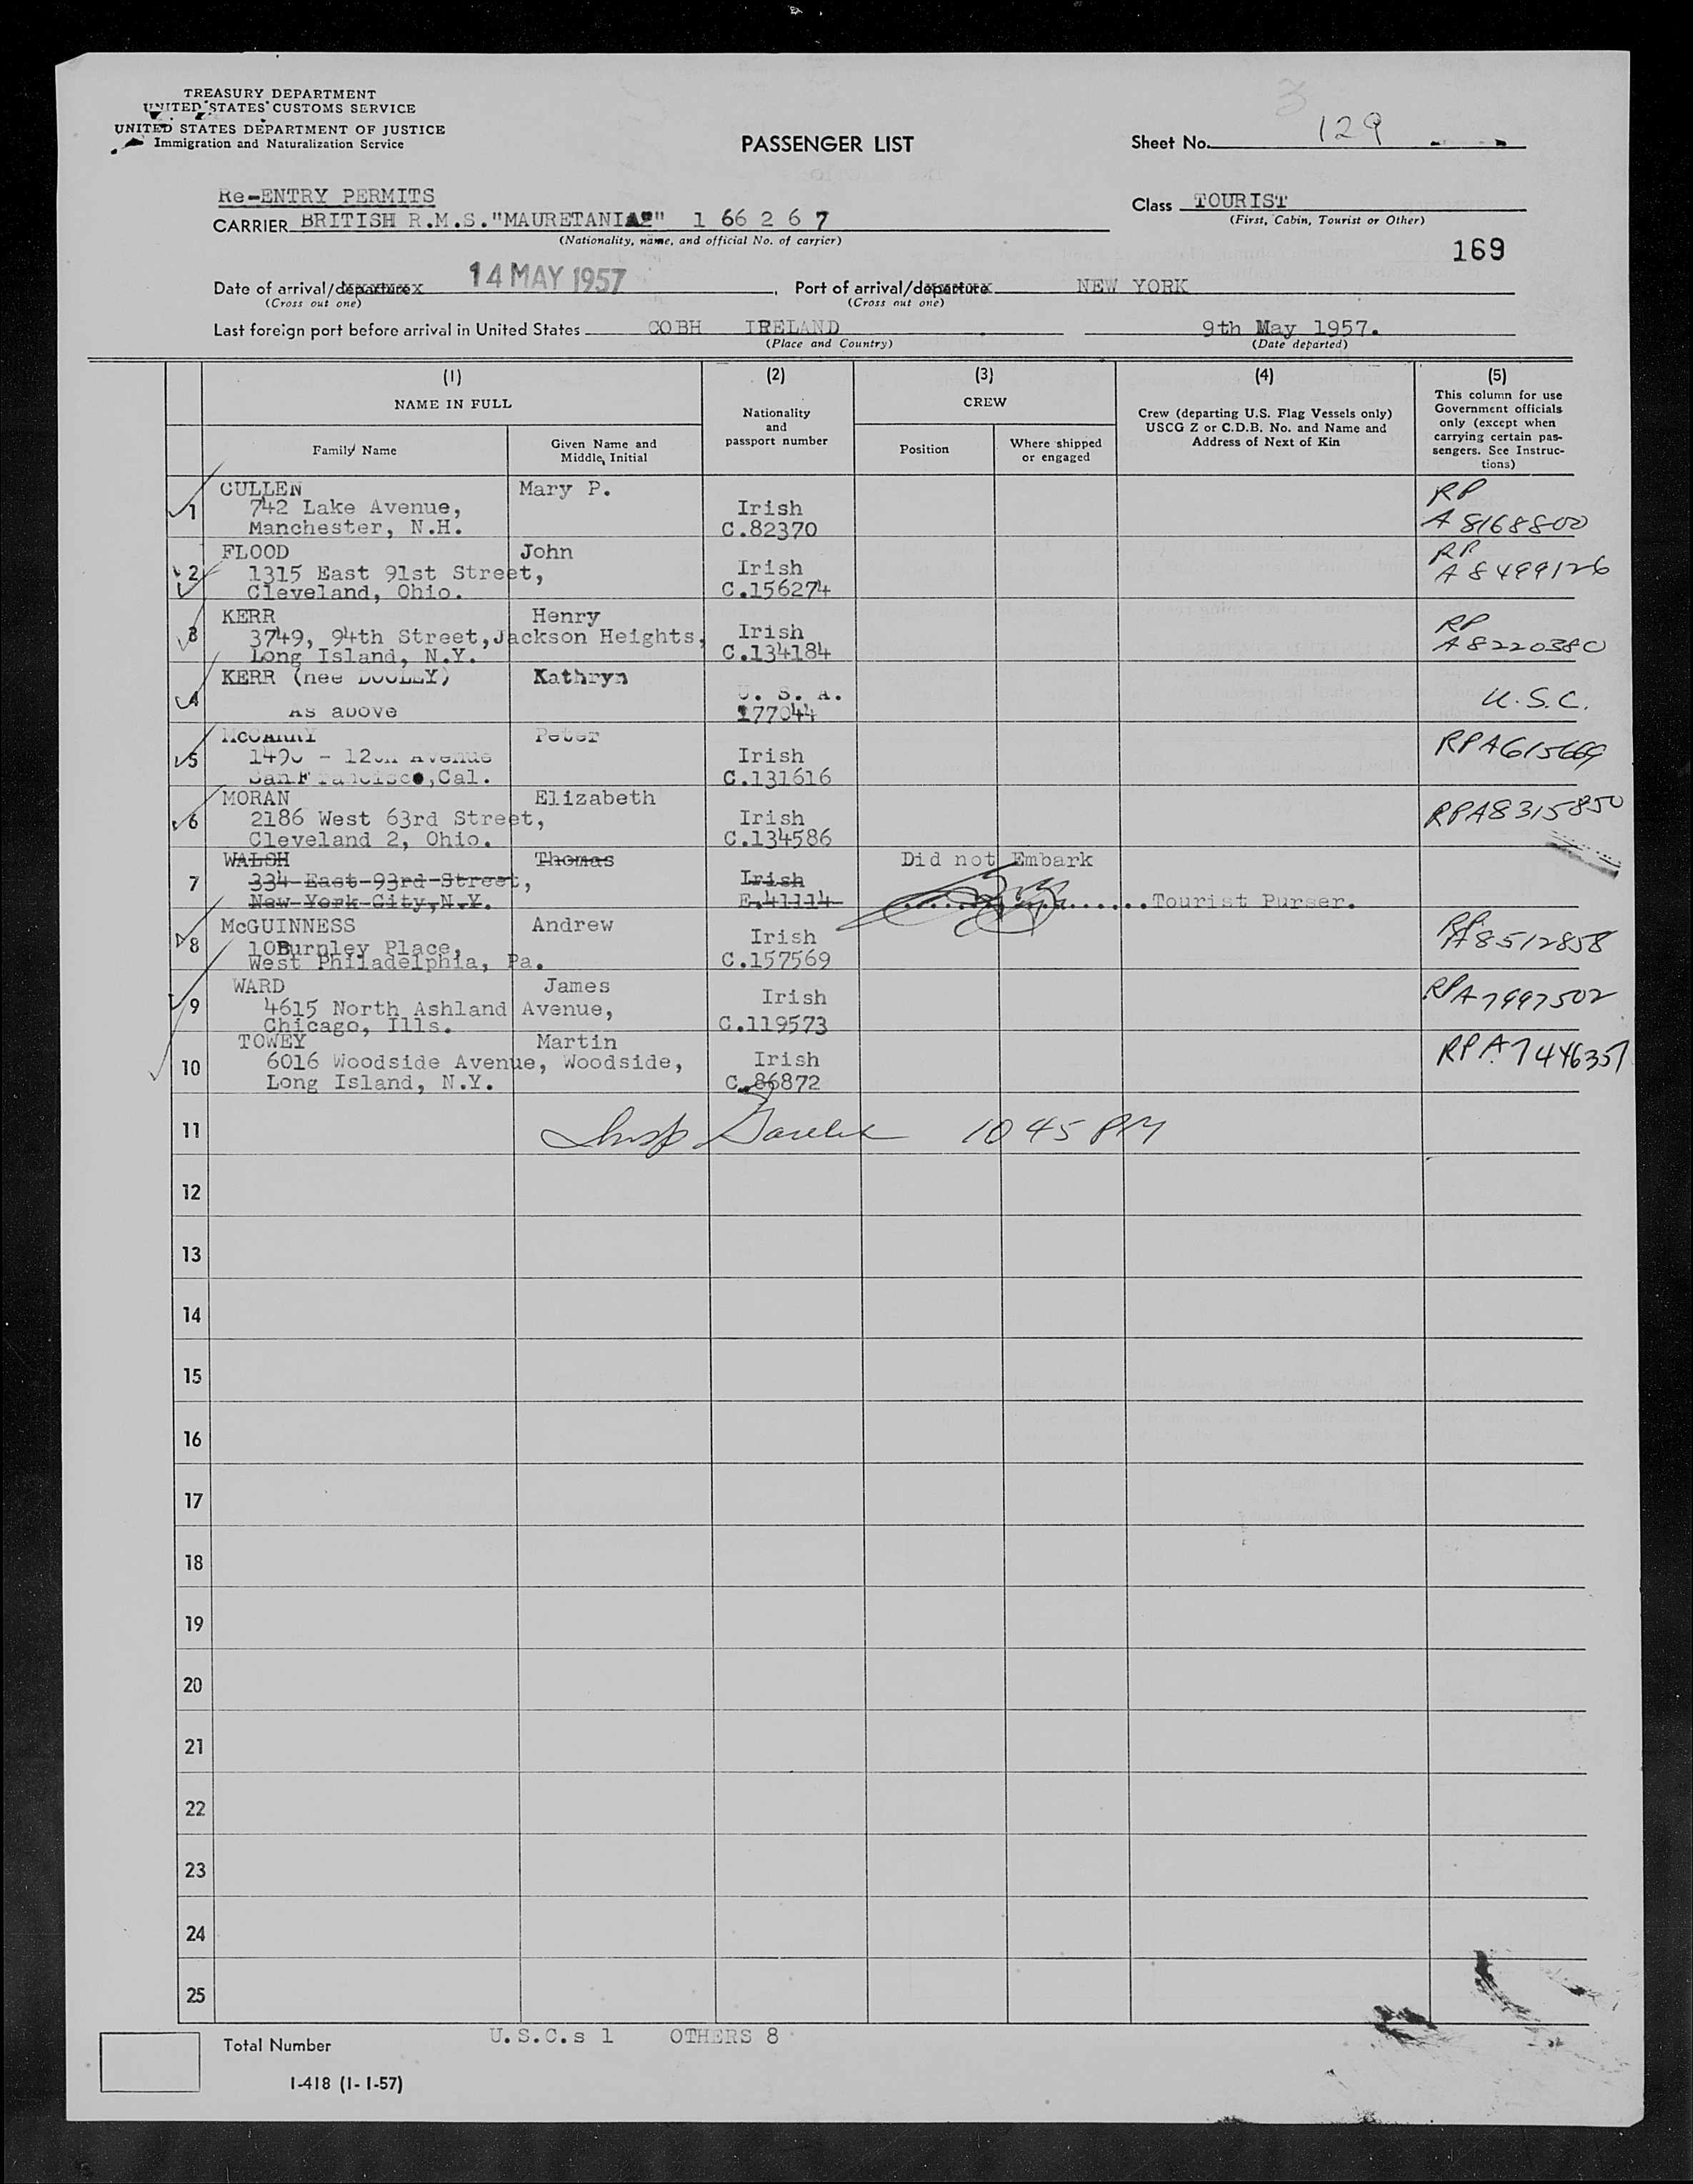 TREASURY DEPARTMENT
UNITED STATES CUSTOMS SERVICE
UNITED STATES DEPARTMENT OF JUSTICE
Immigration and Naturalization Service
PASSENGER LIST
Sheet No. 129
Re-ENTRY PERMITS
CARRIER BRITISH R.M.S."MAURETANIA" 1 66 2 6 7
(Nationality, name, and official No. of carrier)
Class TOURIST
(First, Cabin, Tourist or Other)
169
Date of arrival/departure 14 MAY 1957, Port of arrival/departure NEW YORK
(Cross out one) (Cross out one)
Last foreign port before arrival in United States COBH IRELAND 9th May 1957.
(Place and Country) (Date departed)
(1) (2) (3) (4) (5)
NAME IN FULL
Family Name
Given Name and
Middle, Initial
Nationality
and
passport number
CREW
Position
Where shipped
or engaged
Crew (departing U.S. Flag Vessels only)
USCG Z or C.D.B. No. and Name and
Address of Next of Kin
This column for use
Government officials
only (except when
carrying certain pas-
sengers. See Instruc-
tions)
CULLEN Mary P. RP
1 742 Lake Avenue, Irish
Manchester, N.H. C.82370 A 8168800
FLOOD John RP
2 1315 East 91st Street, Irish A 8499126
Cleveland, Ohio. C.156274
KERR Henry RP
3 3749, 94th Street, Jackson Heights, Irish
Long Island, N.Y. C.134184 A8220380
KERR (nee DOOLEY) Kathryn
4 U. S. A. U.S.C.
As above 177044
McGARRY Peter RPA615669
5 - 12th Avenue Irish
San Francisco, Cal. C.131616
MORAN Elizabeth
6 2186 West 63rd Street, Irish RPA8315850
Cleveland 2, Ohio. C.134586
WALSH Thomas Did not Embark
7 334 East 93rd Street, Irish
New York City, N.Y. E.41114 Tourist Purser.
McGUINNESS Andrew RP
8 10 Burnley Place, Irish A8512858
West Philadelphia, Pa. C.157569
WARD James
9 4615 North Ashland Avenue, Irish RPA7997502
Chicago, Ills. C.119573
TOWEY Martin
10 6016 Woodside Avenue, Woodside, Irish RPA7446357
Long Island, N.Y. C.86872
11 Insp 10 45 PM
12
13
14
15
16
17
18
19
20
21
22
23
24
25
Total Number U.S.C.s 1 OTHERS 8
I-418 (1-1-57)